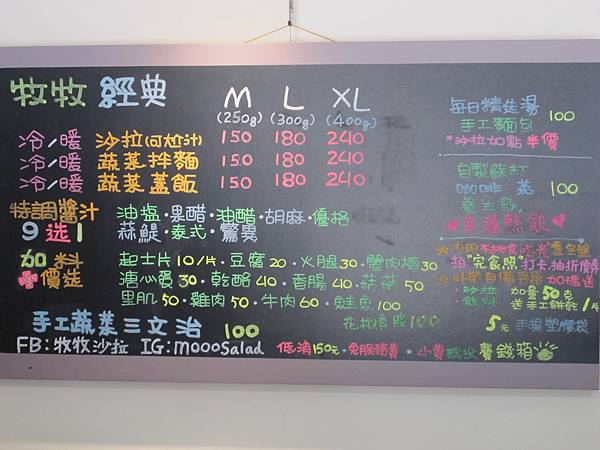 牧牧 經典 M L XL
(250g) (300g) (400g)
冷/暖 沙拉(可加汁) 150 180 240
冷/暖 蔬菜拌麵 150 180 240
冷/暖 蔬菜蓋飯 150 180 240
特調醬汁 油塩·果醋·油醋·胡麻·優格
9选1 蒜鯷·泰式·驚異
加料 起士片10/片·豆腐20·火腿30·
+價选 溏心蛋30·乾酪40·香腸40·菇菇50
里肌50·雞肉50·牛肉60·鮭魚100
手工蔬菜三文治 100
100
FB:牧牧沙拉 IG:moooSalad
低消150元·免服務費·小黃 賽錢箱
每日精选湯
手工麵包 100
*沙拉加點半價
自製蘇打
咖啡 茶 100
幸福熱飲
拍"完食照"打卡抽折價券
沙拉 加量50克
飲料 送手工餅乾1片
5元 手提塑膠袋